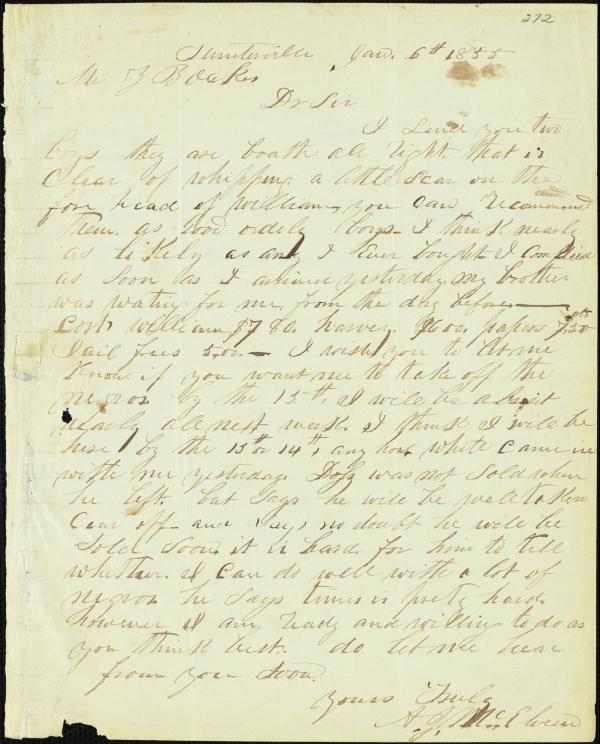 272
Sumterville Jan. 6th 1855
Mr Z B Oakes
Dr Sir
I Send you two
boys they are boath all right that is
Clear of whipping a little Scar on the
fore head of william, you Can Recommend
them as good orderly boys - I think nearly
as likely as any I Ever bought I
as Soon as I arrived yesterday my brother
was wating for me from the day before —
Cost william $780. harvey $600. papers 7.50
Jail fees 5.00. — I wish you to let me
Know if you want me to take off the
negros by the 15th, I will be absent
nearly all next week. I think I will be
here by the 13th or 14th, any how white Came in
with me yesterday. was not Sold when
he left but Says he will be well to
off and Says no doubt he will be
Sold Soon it is hard for him to tell
whether I Can do well with a lot of
negros he Says times is prety hard.
however I am Ready and willing to do as
you think best. do let me hear
from you Soon.
yours Truly
A. J. McElveen